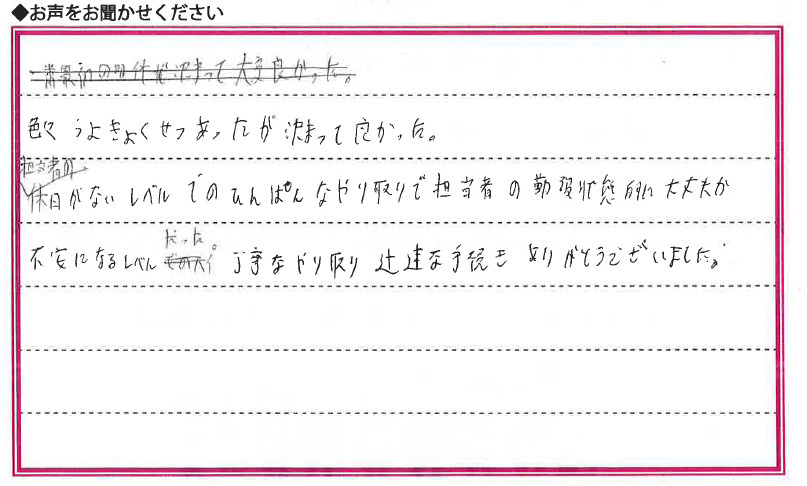 ◆お声をお聞かせください
一番最初の物件で決まって大変良かった。
色々うよきょくせつあったが決まって良かった。
担当者の
休日がないレベルでのひんぱんなやり取りで担当者の勤務状態的に大丈夫か
だった。
不安になるレベル 丁寧なやり取り 迅速な手続き ありがとうございました。